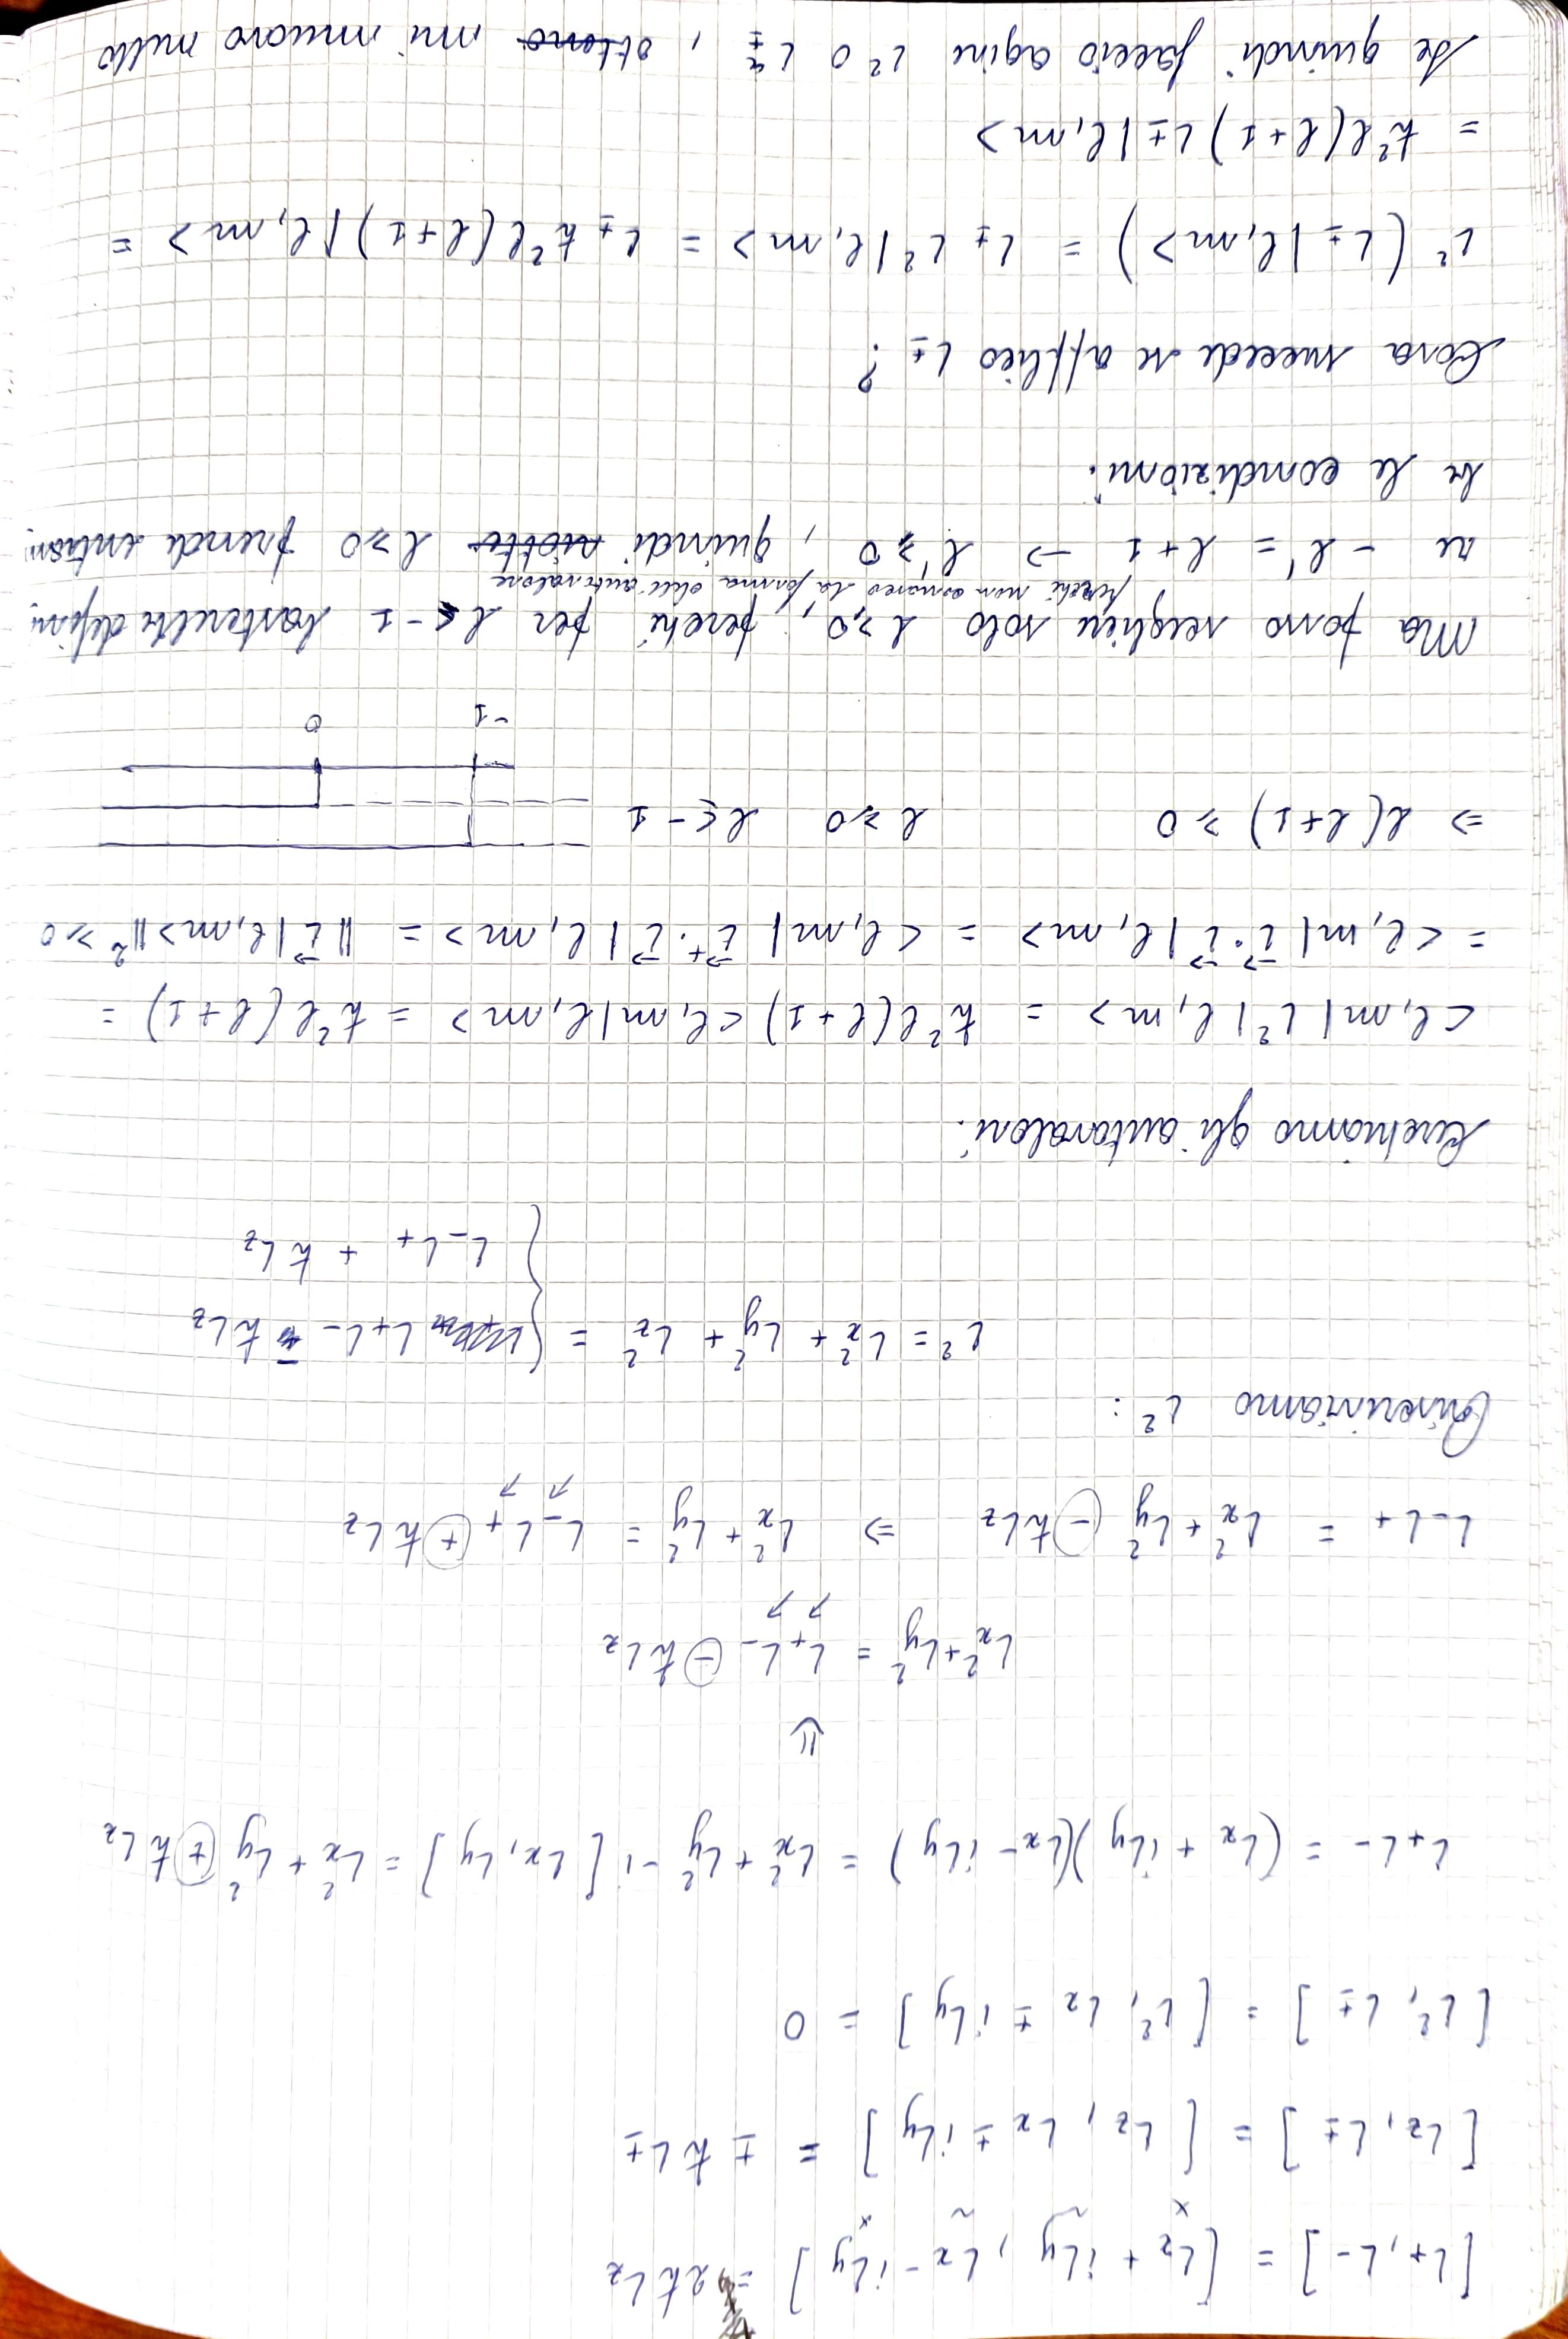 [L+, L-] = [Lx + iLy, Lx - iLy] = 2ħLz
[Lz, L±] = [Lz, Lx ± iLy] = ± ħL±
[L², L±] = [L², Lx ± iLy] = 0
L+L- = (Lx + iLy)(Lx - iLy) = Lx² + Ly² - i[Lx, Ly] = Lx² + Ly² + ħLz
⇓
Lx² + Ly² = L+L- - ħLz
L-L+ = Lx² + Ly² - ħLz ⇒ Lx² + Ly² = L-L+ + ħLz
Riscriviamo L²:
L² = Lx² + Ly² + Lz² = { L+L- - ħLz
L-L+ + ħLz
Cerchiamo gli autovalori.
<l,m|L²|l,m> = ħ²l(l+1)<l,m|l,m> = ħ²l(l+1) =
= <l,m|L⃗·L⃗|l,m> = <l,m|L⃗⁺·L⃗|l,m> = ||L⃗|l,m>||² ≥ 0
⇒ l(l+1) ≥ 0 l ≥ 0 l ≤ -1
-1 0
Ma posso scegliere solo l ≥ 0, perché per l ≤ -1 basterebbe defini
perché non cambierò la forma dell'autovalore
re -l' = l+1 → l' ≥ 0, quindi l ≥ 0 prende entram
be le condizioni.
Cosa succede se applico L±?
L²(L±|l,m>) = L± L²|l,m> = L± ħ²l(l+1)|l,m> =
= ħ²l(l+1) L±|l,m>
Se quindi faccio agire L² o L±, mi muovo nello